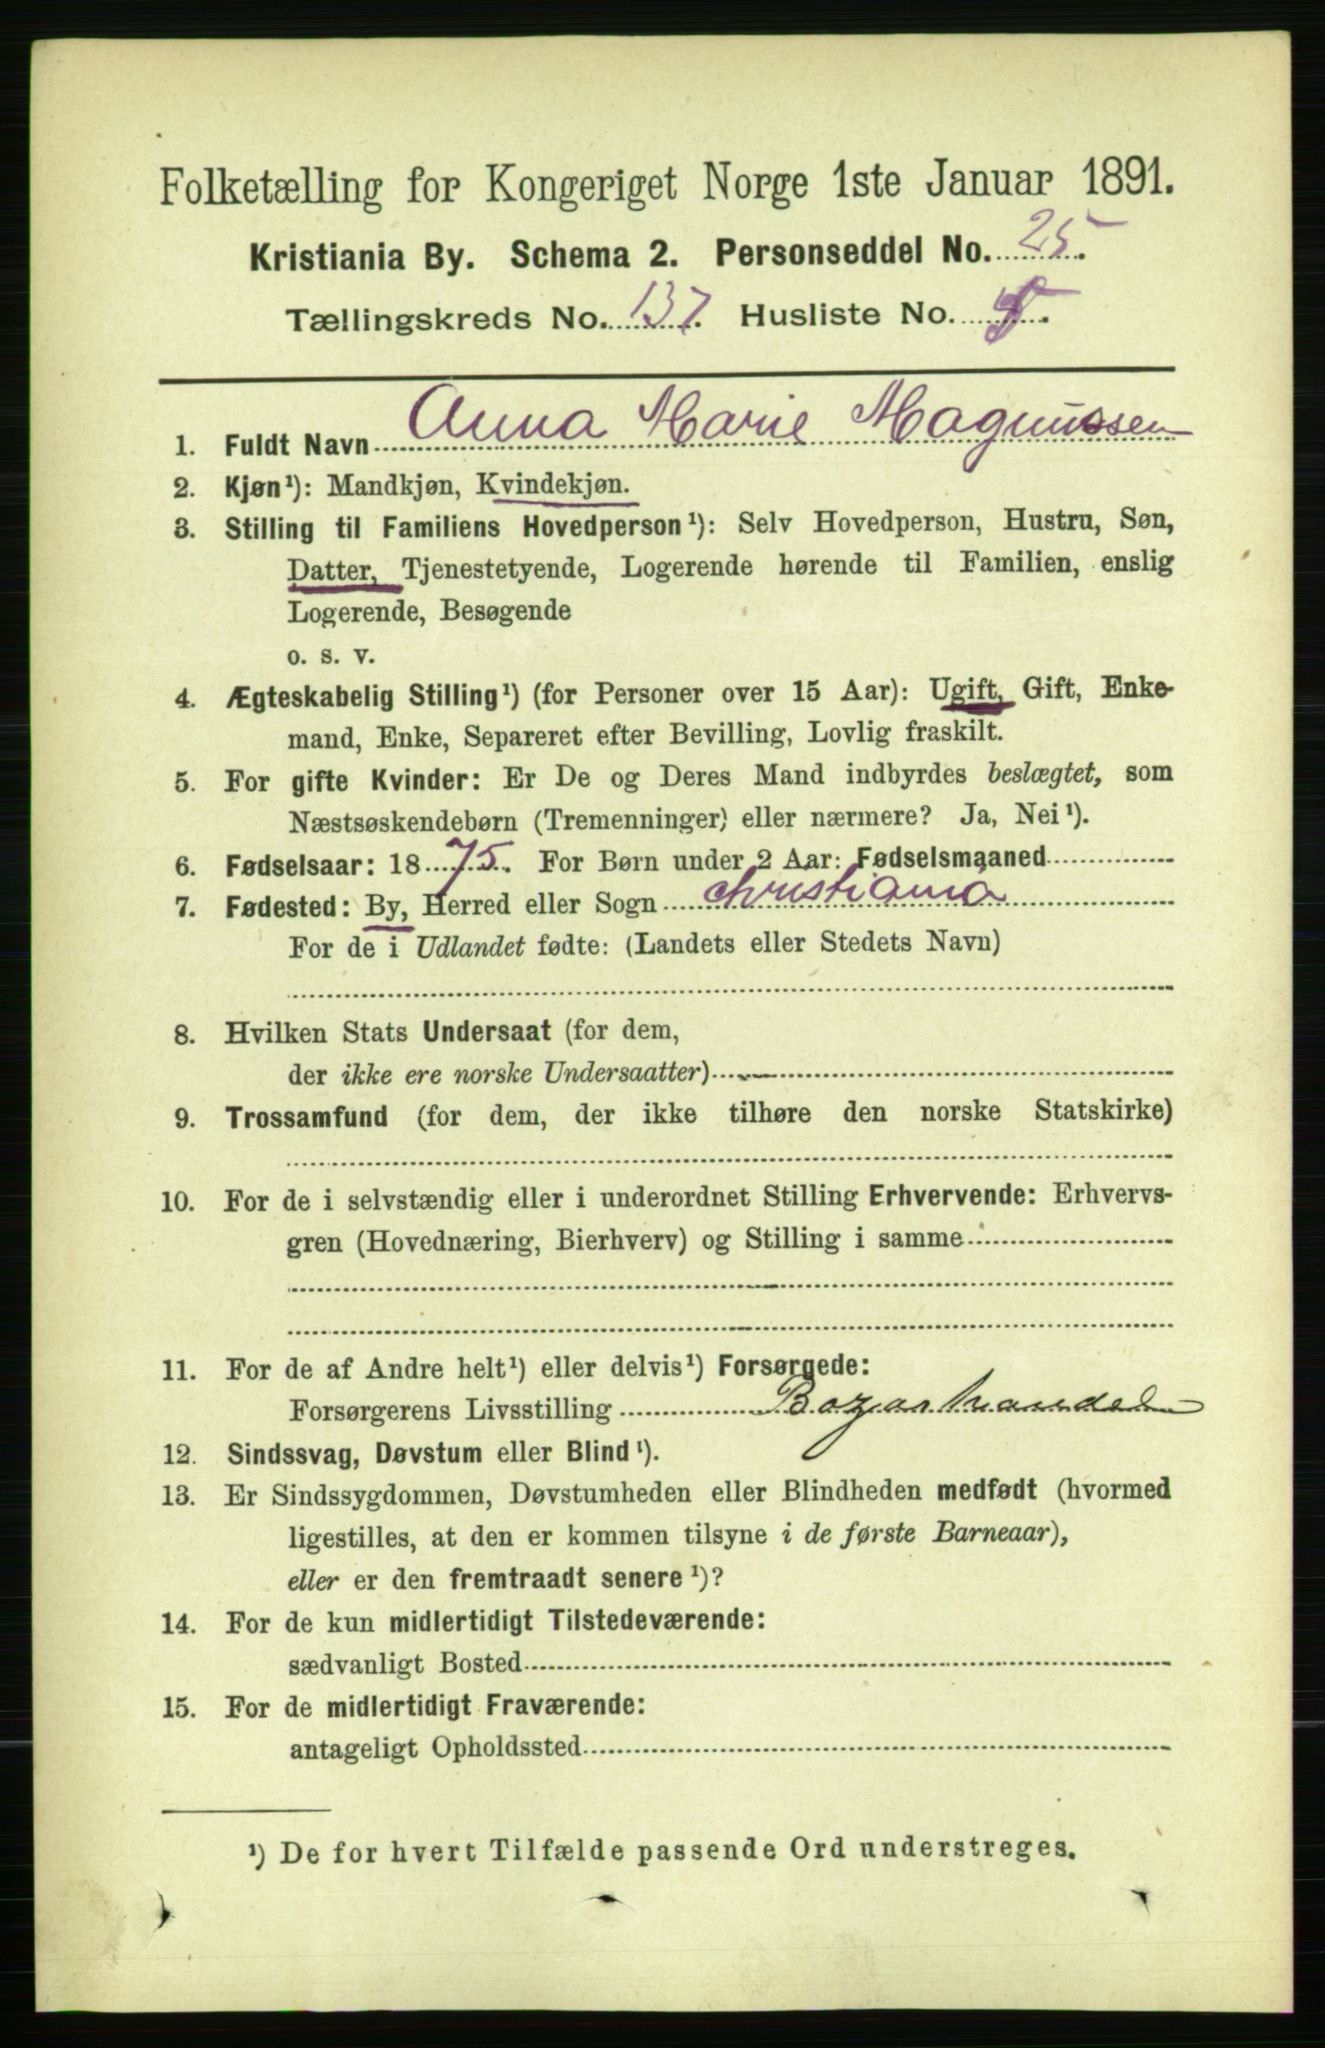 Folketælling for Kongeriget Norge 1ste Januar 1891.
Kristiania By. Schema 2. Personseddel No. 25.
Tællingskreds No. 137. Husliste No.
1. Fuldt Navn Anna Marie Magnussen
2. Kjøn¹): Mandkjøn, Kvindekjøn.
3. Stilling til Familiens Hovedperson¹): Selv Hovedperson, Hustru, Søn,
Datter, Tjenestetyende, Logerende hørende til Familien, enslig
Logerende, Besøgende
o. s. v.
4. Ægteskabelig Stilling¹) (for Personer over 15 Aar): Ugift, Gift, Enke-
mand, Enke, Separeret efter Bevilling, Lovlig fraskilt.
5. For gifte Kvinder: Er De og Deres Mand indbyrdes beslægtet, som
Næstsøskendebørn (Tremenninger) eller nærmere? Ja, Nei¹).
6. Fødselsaar: 1875. For Børn under 2 Aar: Fødselsmaaned
7. Fødested: By, Herred eller Sogn christiania
For de i Udlandet fødte: (Landets eller Stedets Navn)
8. Hvilken Stats Undersaat (for dem,
der ikke ere norske Undersaatter)
9. Trossamfund (for dem, der ikke tilhøre den norske Statskirke)
10. For de i selvstændig eller i underordnet Stilling Erhvervende: Erhvervs-
gren (Hovednæring, Bierhverv) og Stilling i samme
11. For de af Andre helt¹) eller delvis¹) Forsørgede:
Forsørgerens Livsstilling Bazarhandel
12. Sindssvag, Døvstum eller Blind¹).
13. Er Sindssygdommen, Døvstumheden eller Blindheden medfødt (hvormed
ligestilles, at den er kommen tilsyne i de første Barneaar),
eller er den fremtraadt senere¹)?
14. For de kun midlertidigt Tilstedeværende:
sædvanligt Bosted
15. For de midlertidigt Fraværende:
antageligt Opholdssted
¹) De for hvert Tilfælde passende Ord understreges.